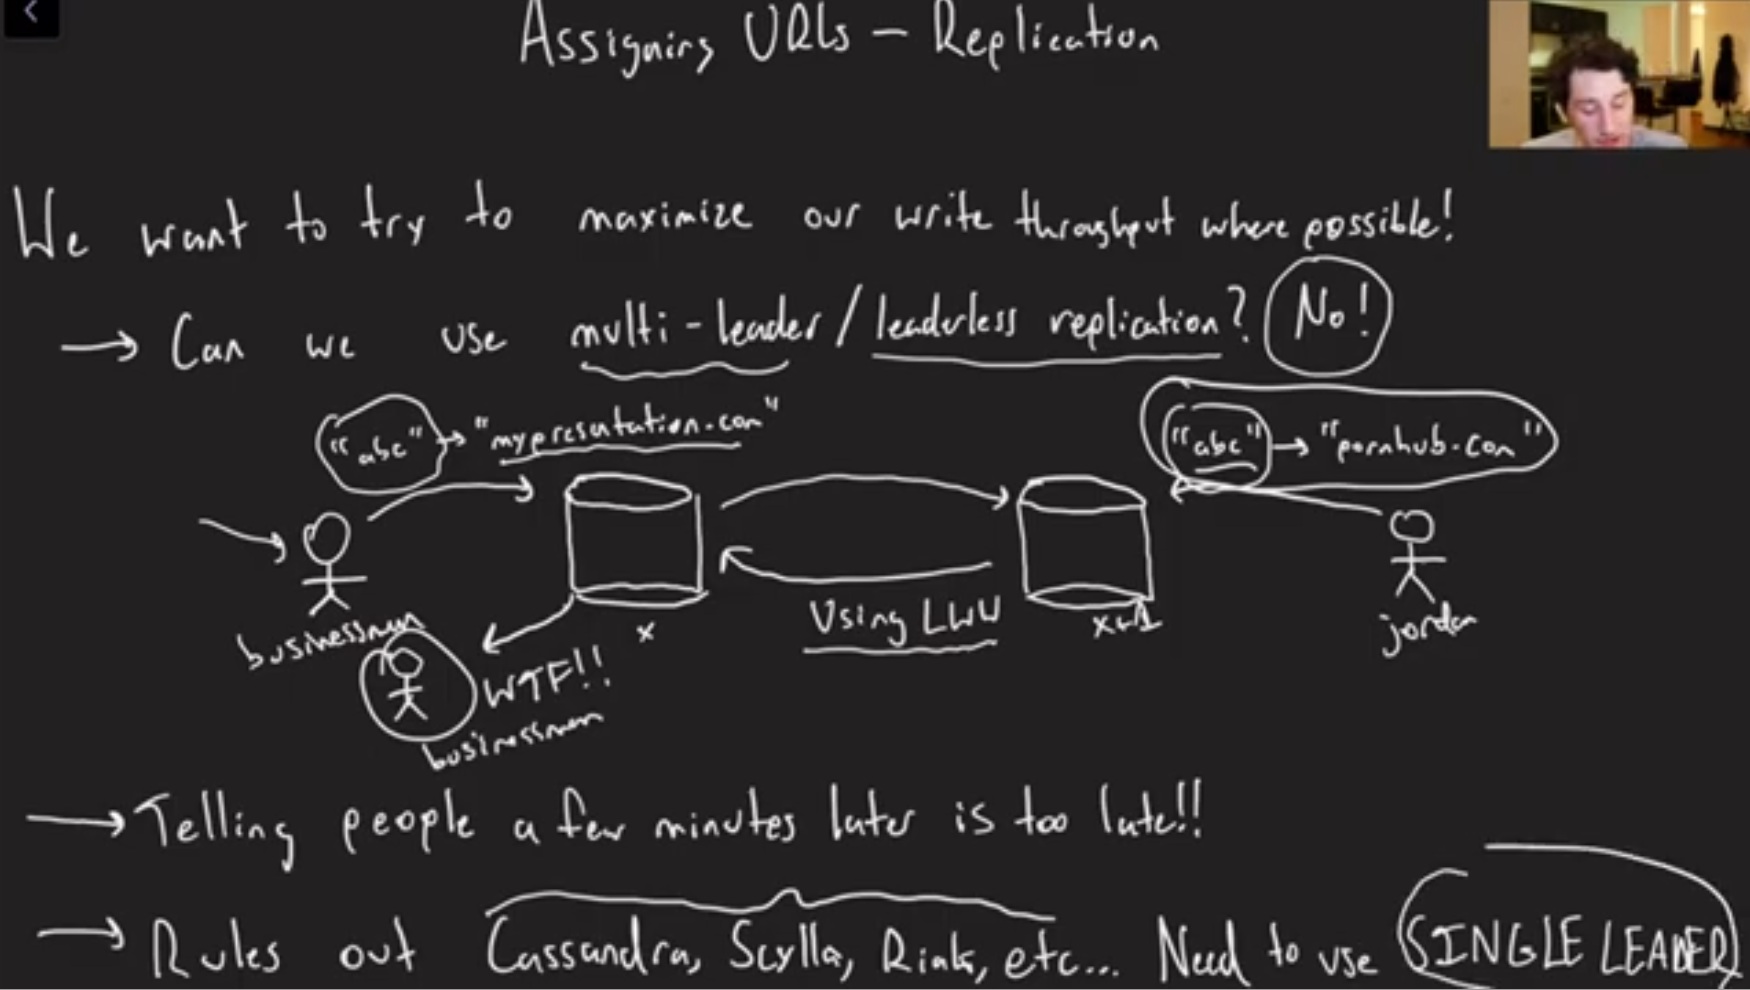 Assigning URLs - Replication
We want to try to maximize our write throughput where possible!
→ Can we use multi-leader/leaderless replication? No!
"abc" → "mypresentation.com"
"abc" → "pornhub.com"
businessman
x
Using LWW
x+1
jordan
WTF!!
businessman
→ Telling people a few minutes later is too late!!
→ Rules out Cassandra, Scylla, Riak, etc... Need to use SINGLE LEADER